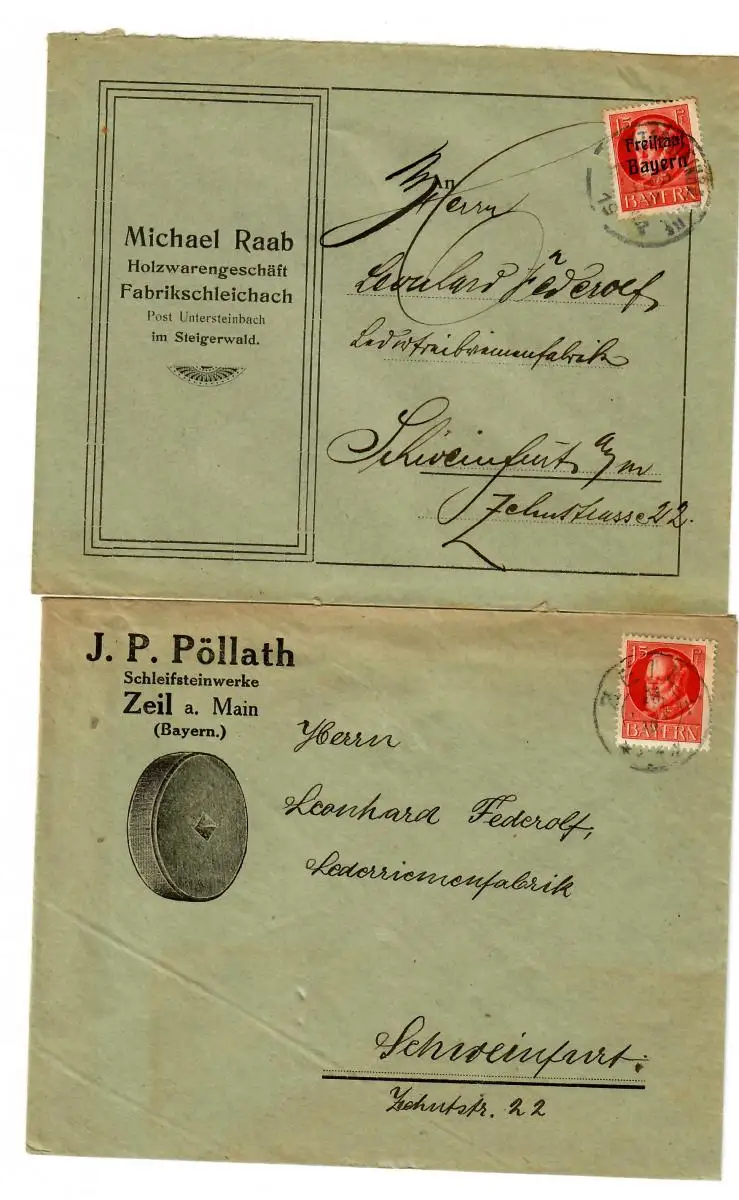 Michael Raab
Holzwarengeschäft
Fabrikschleichach
Post Untersteinbach
im Steigerwald.
15 Pf
Freistaat
Bayern
BAYERN
An
Herrn
Leonhard Federolf
Ledertreibriemenfabrik
Schweinfurt a/m
Zehnstrasse 22.
J. P. Pöllath
Schleifsteinwerke
Zeil a. Main
(Bayern.)
15 Pf
BAYERN
Herrn
Leonhard Federolf,
Lederriemenfabrik
Schweinfurt.
Zehntstr. 22